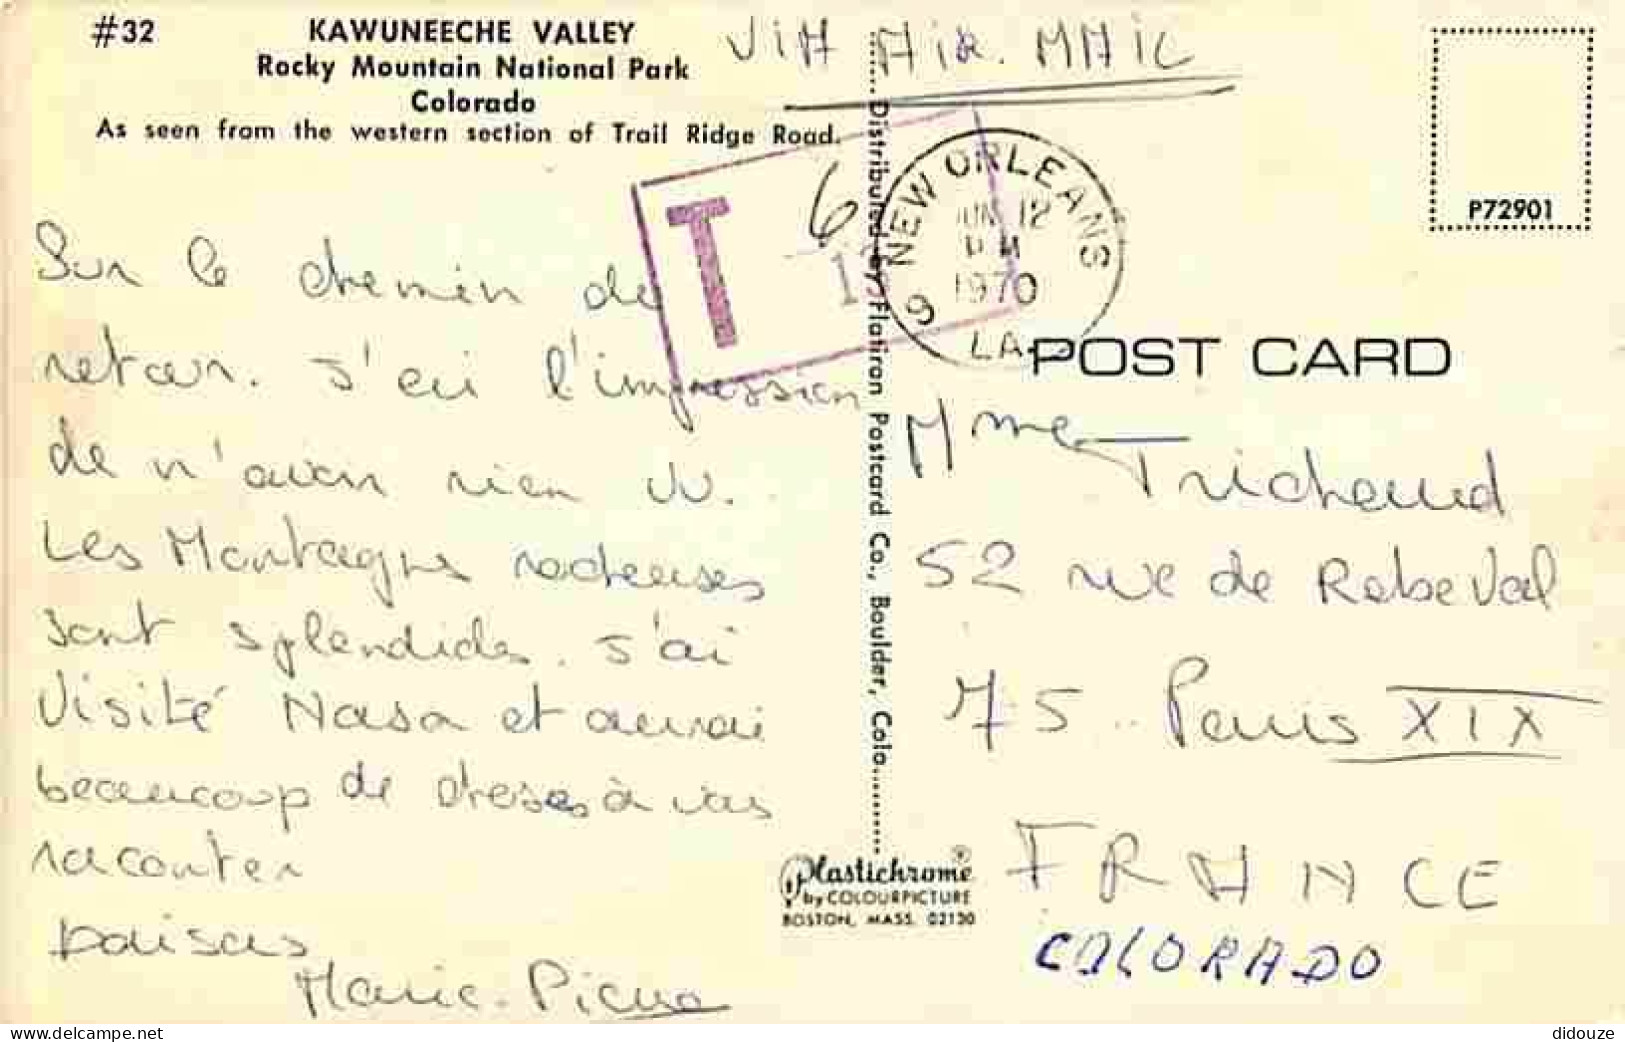 #32
KAWUNEECHE VALLEY
Rocky Mountain National Park
Colorado
As seen from the western section of Trail Ridge Road.
VIA AIR. MAIL
P72901
T
6
NEW ORLEANS
JUN 12
PM
1970
LA
9
Sur le chemin de
retour. J'ai l'impression
de n'avoir rien vu.
Les Montagnes rocheuses
sont splendides. J'ai
Visité Nasa et aurai
beaucoup de choses à vous
raconter
baisers
Marie-Pierre
Distributed by Flatiron Postcard Co., Boulder, Colo.
POST CARD
Mme Trichaud
52 rue de Rebeval
75.. Paris XIX
FRANCE
COLORADO
Plastichrome®
by COLOURPICTURE
BOSTON, MASS. 02130
didouze